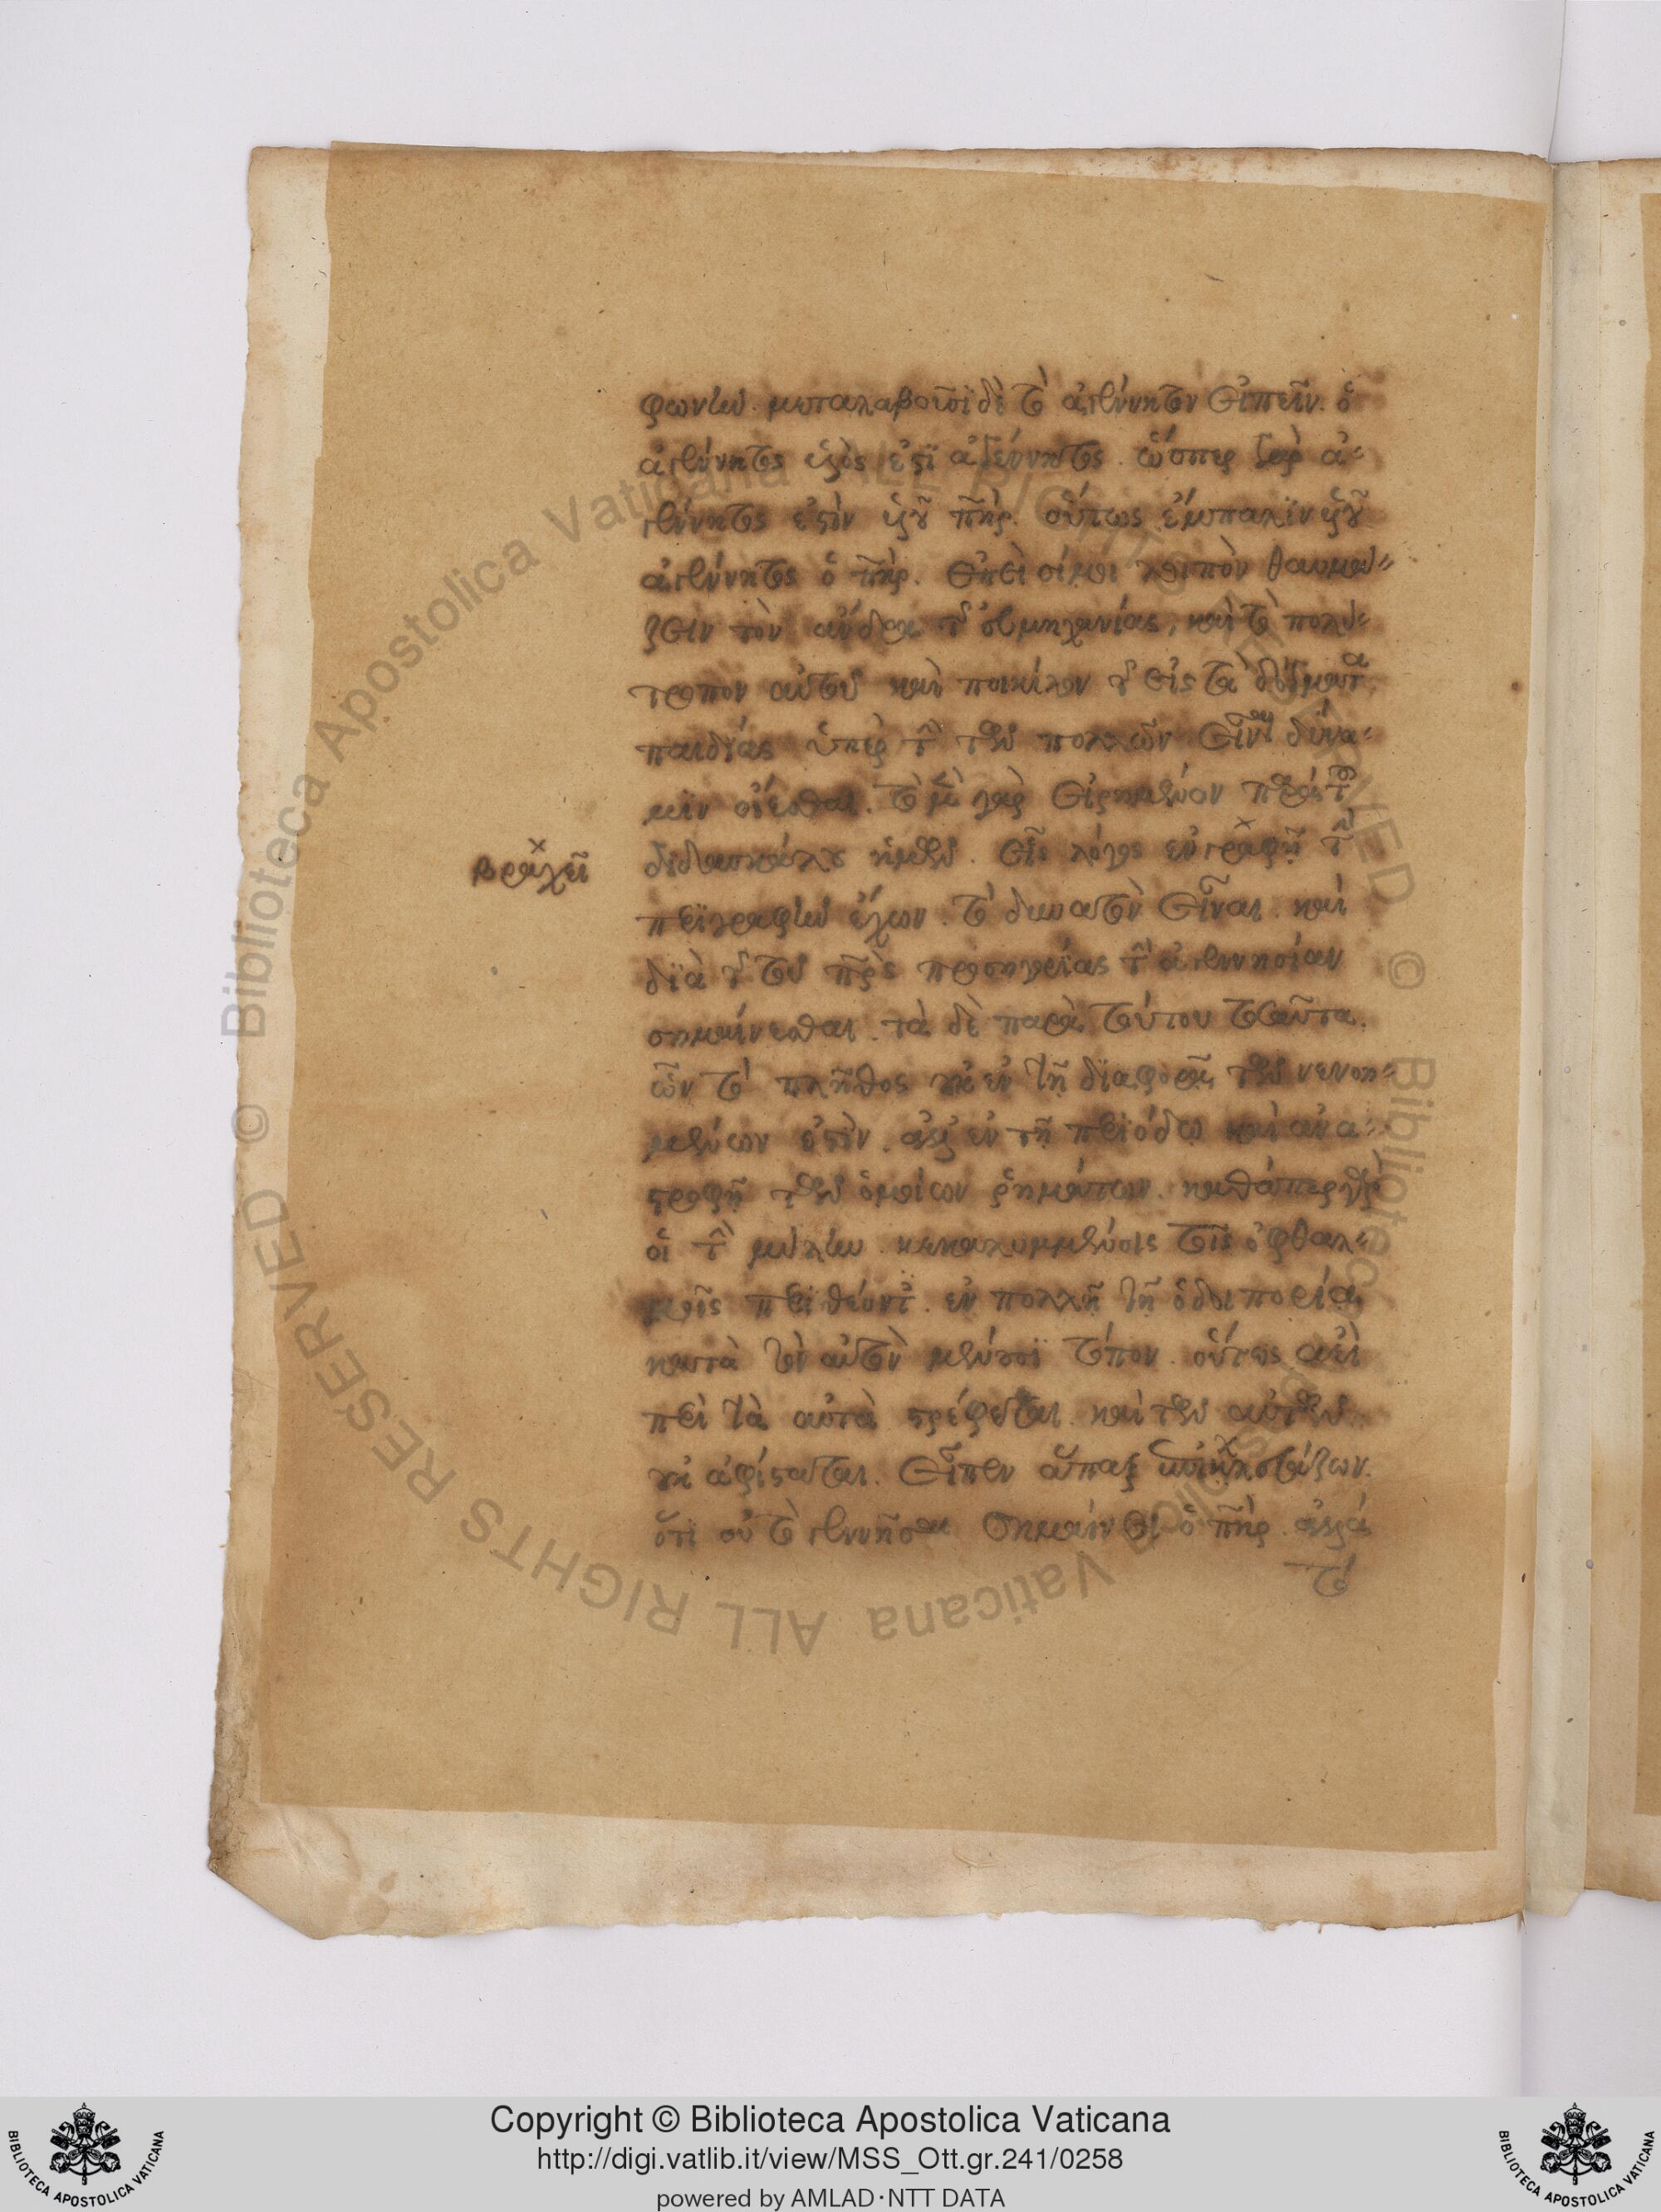 φωνίαν. μεταλαβοῦσι δὲ τὸ ἀγέννητον εἰπεῖν. ὁ
ἀγέννητος υἱὸς ἐστὶ ἀγέννητος. ὥσπερ γὰρ ἀ-
γέννητος ἐστὶν υἱοῦ πηρ. οὕτως ἔμπαλιν υἱοῦ
ἀγέννητος ὁ πηρ.
ζειν τὸν ἄνδρα τῆς εὐμηχανίας, καὶ τὸ πολύ-
τροπον αὐτοῦ καὶ ποικίλον τῆς εἰς τὰ δόγματα
παιδίας ὑπὲρ τὴν τῶν πολλῶν εἶναι δύνα-
μιν οἴεσθαι. τὸ μὲν γὰρ εἰρημένον παρὰ τοῦ
διδασκάλου ἡμῶν. εἷς λόγος ἐν γραφῇ τὴν
βραχεῖ
περιγραφὴν ἔχων. τὸ δυνατὸν εἶναι. καὶ
διὰ τῆς τοῦ πρς προσηγορίας τὴν ἀγεννησίαν
σημαίνεσθαι. τὰ δὲ παρὰ τούτου τοσαῦτα.
ὧν τὸ πλῆθος οὐκ ἐν τῇ διαφορᾷ τῶν νενοη-
μένων ἐστὶν. ἀλλ' ἐν τῇ περιόδῳ καὶ ἀνα-
στροφῇ τῶν ὁμοίων ῥημάτων. καθάπερ γὰρ
οἱ τὴν μύλην κεκαλυμμένοις τοῖς ὀφθαλ-
μοῖς περιθέοντες. ἐν πολλῇ τῇ ὁδοιπορίᾳ
κατὰ τὸν αὐτὸν μένουσι τόπον. οὕτως ἀεὶ
περὶ τὰ αὐτὰ στρέφεται. καὶ τῶν αὐτῶν
οὐκ ἀφίσταται. εἶπεν ἅπαξ
ὅτι οὐ τὸ γεννῆσαι σημαίνει ὁ πηρ. ἀλλὰ
τὸ
Copyright © Biblioteca Apostolica Vaticana
http://digi.vatlib.it/view/MSS_Ott.gr.241/0258
powered by AMLAD·NTT DATA
BIBLIOTECA APOSTOLICA VATICANA
BIBLIOTECA APOSTOLICA VATICANA
© Biblioteca Apostolica Vaticana ALL RIGHTS RESERVED © Biblioteca Apostolica Vaticana ALL RIGHTS RESERVED